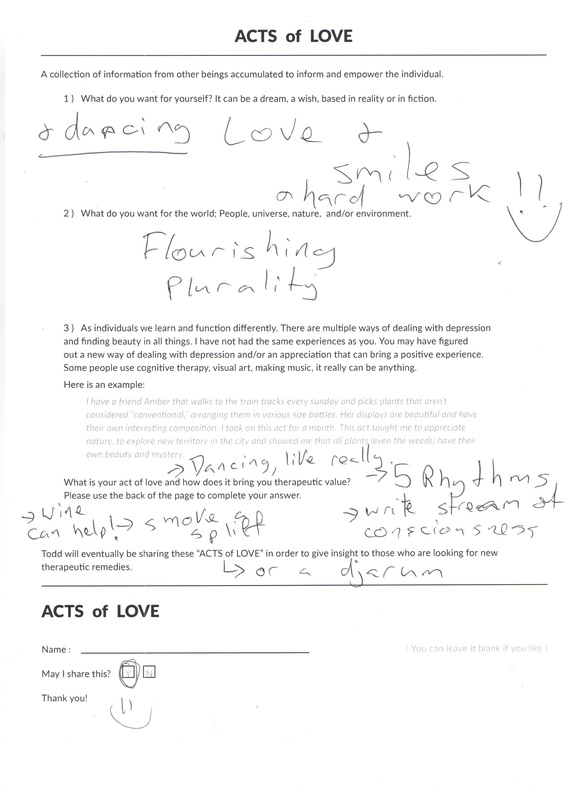 ACTS of LOVE
A collection of information from other beings accumulated to inform and empower the individual.
1 ) What do you want for yourself? It can be a dream, a wish, based in reality or in fiction.
& dancing Love &
smiles
a hard work !!
2 ) What do you want for the world; People, universe, nature, and/or environment.
Flourishing
Plurality
3 ) As individuals we learn and function differently. There are multiple ways of dealing with depression
and finding beauty in all things. I have not had the same experiences as you. You may have figured
out a new way of dealing with depression and/or an appreciation that can bring a positive experience.
Some people use cognitive therapy, visual art, making music, it really can be anything.
Here is an example:
I have a friend Amber that walks to the train tracks every sunday and picks plants that aren't
considered "conventional," arranging them in various size bottles. Her displays are beautiful and have
their own interesting composition. I took on this act for a month. This act taught me to appreciate
nature, to explore new territory in the city and showed me that all plants (even the weeds) have their
own beauty and mystery.
→ Dancing, like really.
What is your act of love and how does it bring you therapeutic value?
→ 5 Rhythms
Please use the back of the page to complete your answer.
→ Wine
can help!
→ smove a
spliff
→ write stream of
consciousness
Todd will eventually be sharing these "ACTS of LOVE" in order to give insight to those who are looking for new
therapeutic remedies.
↳ or a djarum
ACTS of LOVE
Name :
( You can leave it blank if you like )
May I share this? Y N
Thank you!